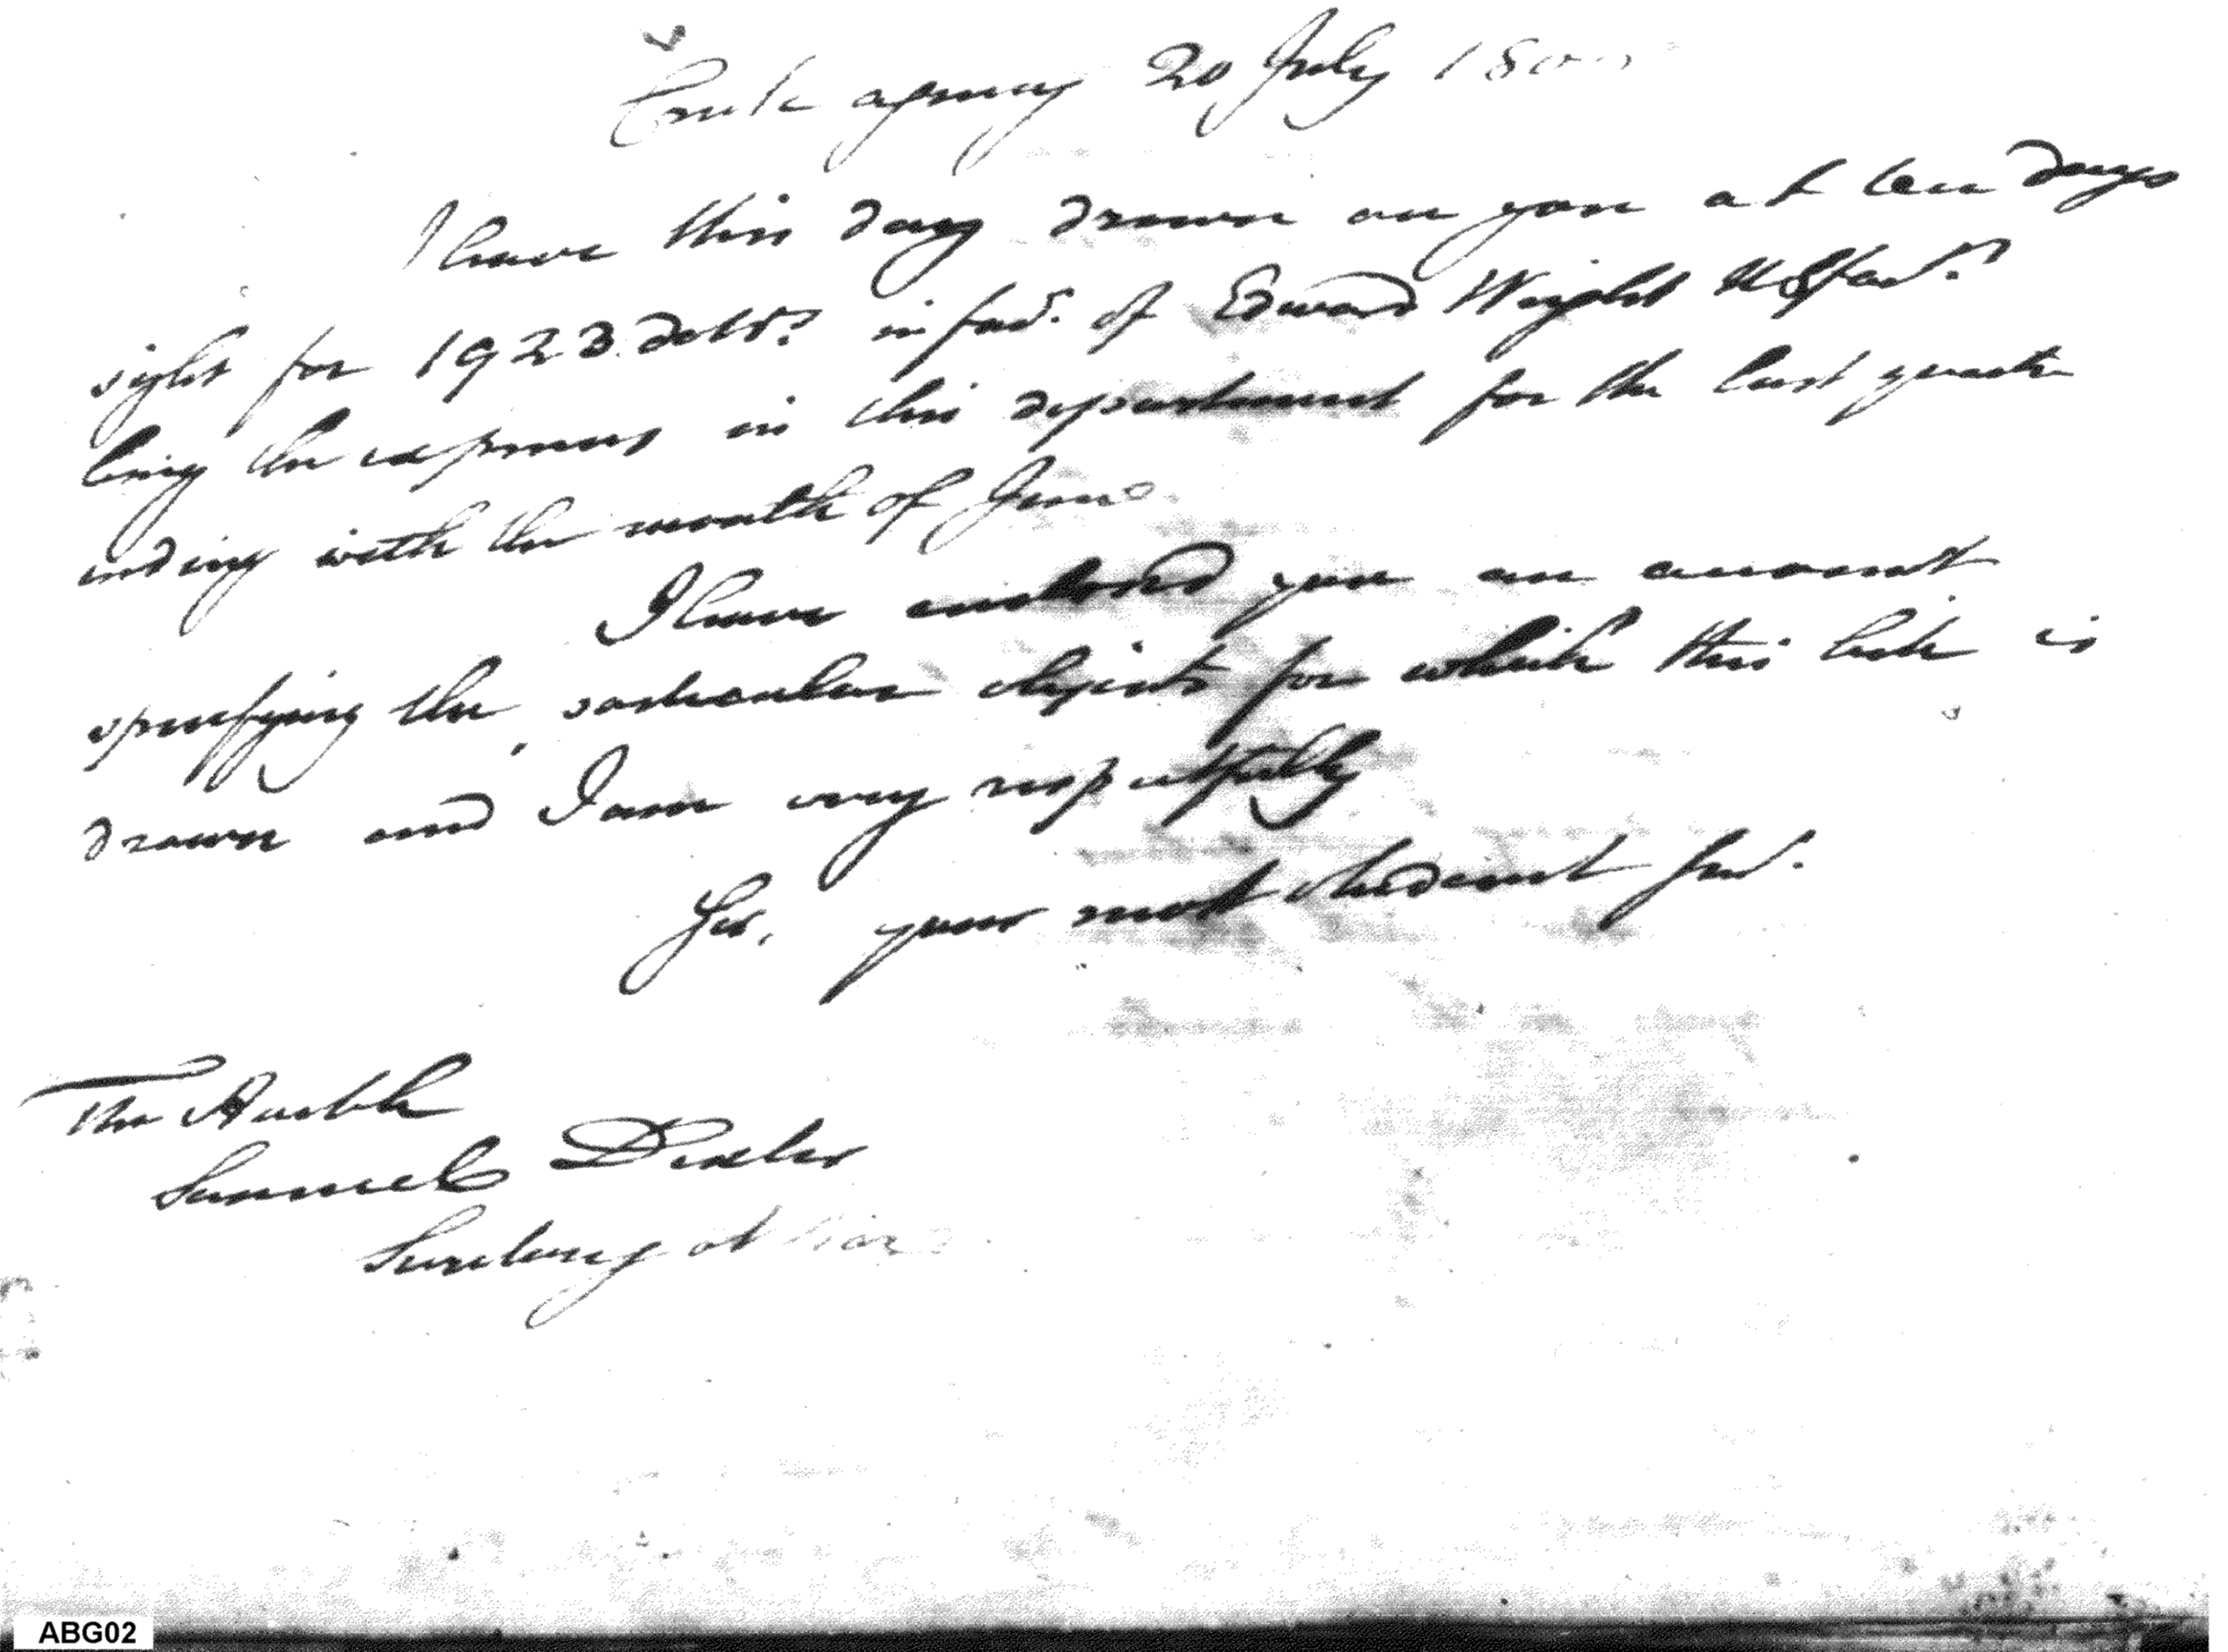 Creek agency 20 July 1800
I have this day drawn on you at ten days
sight for 1923 dolrs. in favr. of Edward Wright
being the expenses in this department for the last quarter
ending with the month of June.
I have enclosed you an account
specifying the particular objects for which this bill is
drawn and I am very respectfully
Sir, your most obedient servt.
The Honble
Samuel Dexter
Secretary of War
ABG02